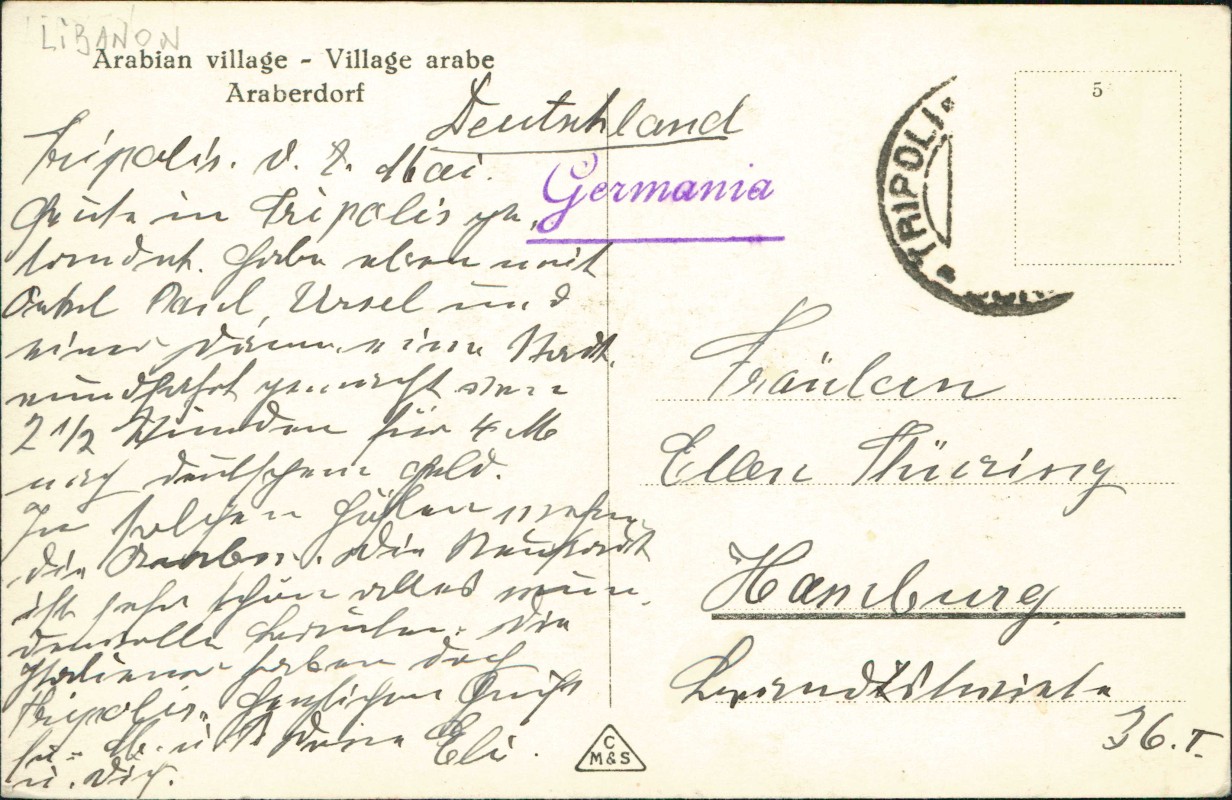 LIBANON
Arabian village - Village arabe
Araberdorf
Deutschland
Germania
TRIPOLI
5
Tripolis. d. 7. Mai.
Heute in Tripolis ge-
landet. Habe eben mit
Onkel Paul, Ursel und
einer Dame eine Stadt-
rundfahrt gemacht von
2 1/2 Stunden für 4 M
nach deutschem Geld.
In solchen Höhlen wohnen
die Araber. Die Neustadt
ist sehr schön alles wun-
dervolle Bauten. Die
Italiener haben doch
Tripolis. Herzlichen Gruß
Deine Eli.
u. Dich.
Fräulein
Ellen Thüring
Hamburg
Brandstwiete
36. I.
C
M&S